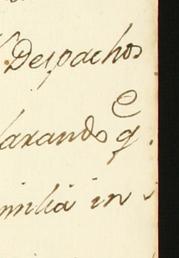 Despachos
larando q̃.
milia in